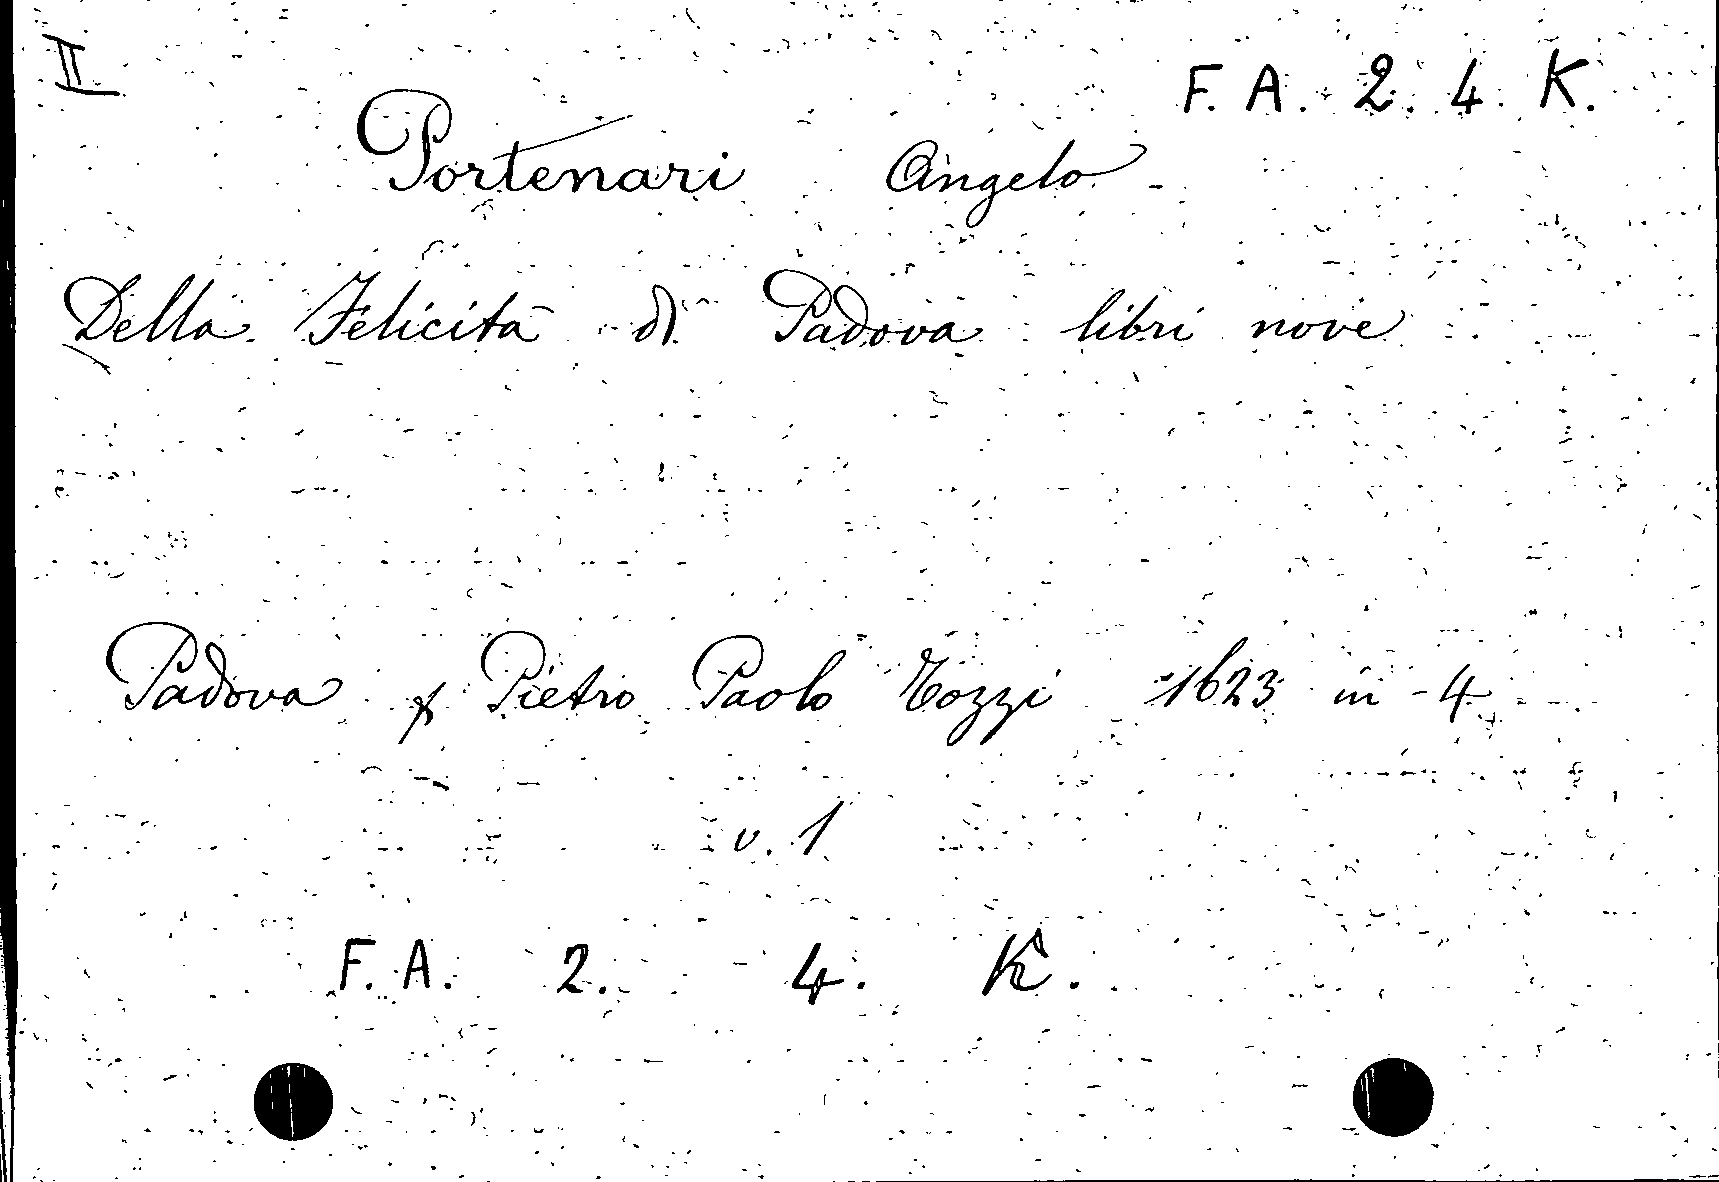 II
F. A. 2. 4. K.
Portenari Angelo
Della Felicità di Padova libri nove
Padova p Pietro Paolo Tozzi 1623 in-4
v. 1
F. A. 2. 4. K.